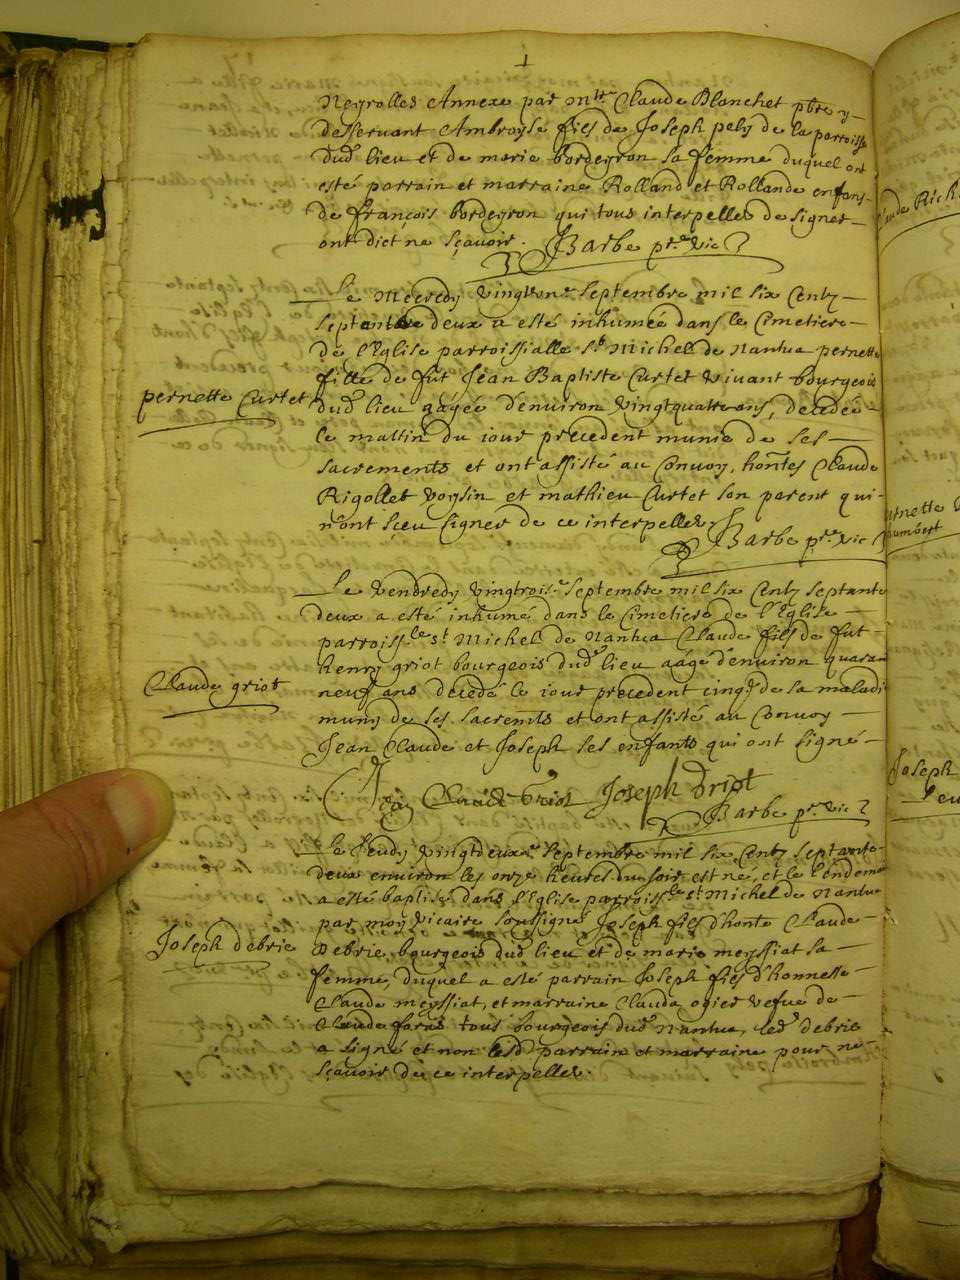 Neyrolles Annexe par mre Claude Blanchet pbre y
desservant Ambroyse fils de Joseph pely de la parroisse
dud lieu et de marie bordeyron sa femme duquel ont
esté parrain et marraine Rolland et Rollande enfans
de françois bordeyron qui tous interpelles de signer
ont dict ne sçavoir. Barbe pre vic
Le Mecredy vingtune septembre mil six Centz
septante deux a esté inhumée dans le Cimetiere
de l'Eglise parroissialle st Michel de Nantua pernette
pernette Curtet
fille de fut Jean Baptiste Curtet vivant bourgeois
dud lieu aagée d'environ vingtquatre ans, decedée
le mattin du iour precedent munie de ses
sacrements et ont assisté au Convoy, hontes Claude
Rigollet voysin et mathieu Curtet son parent qui
n'ont sçeu signer de ce interpelles Barbe pre vic
Le vendredy vingtroise septembre mil six Centz septante
deux a esté inhumé dans le Cimetiere de l'Eglise
parroissle st Michel de Nantua Claude fils de fut
henry griot bourgeois dud lieu aagé d'environ quaran
Claude griot
neuf ans decedé le iour precedent cinqe de sa maladi
muny de ses sacremts et ont assisté au Convoy
Jean Claude et Joseph ses enfants qui ont signé
Claude Griot Joseph Griot
Barbe pre vic
Le Jeudy vingtdeuxe septembre mil six Centz septante
deux environ les onze heures du soir est né, et le lendemain
a esté baptisé dans l'Eglise parroissle st Michel de Nantua
par moy vicaire soussigné Joseph fils d'honte Claude
Joseph debrie
Debrie bourgeois dud lieu et de marie meyssiat sa
femme, duquel a esté parrain Joseph fils d'honneste
Claude meyssiat, et marraine Clauda ogier vefue de
Claude faras tous bourgeois dud Nantua, led debrie
a signé et non lesd parrain et marraine pour ne
sçavoir de ce interpelles.